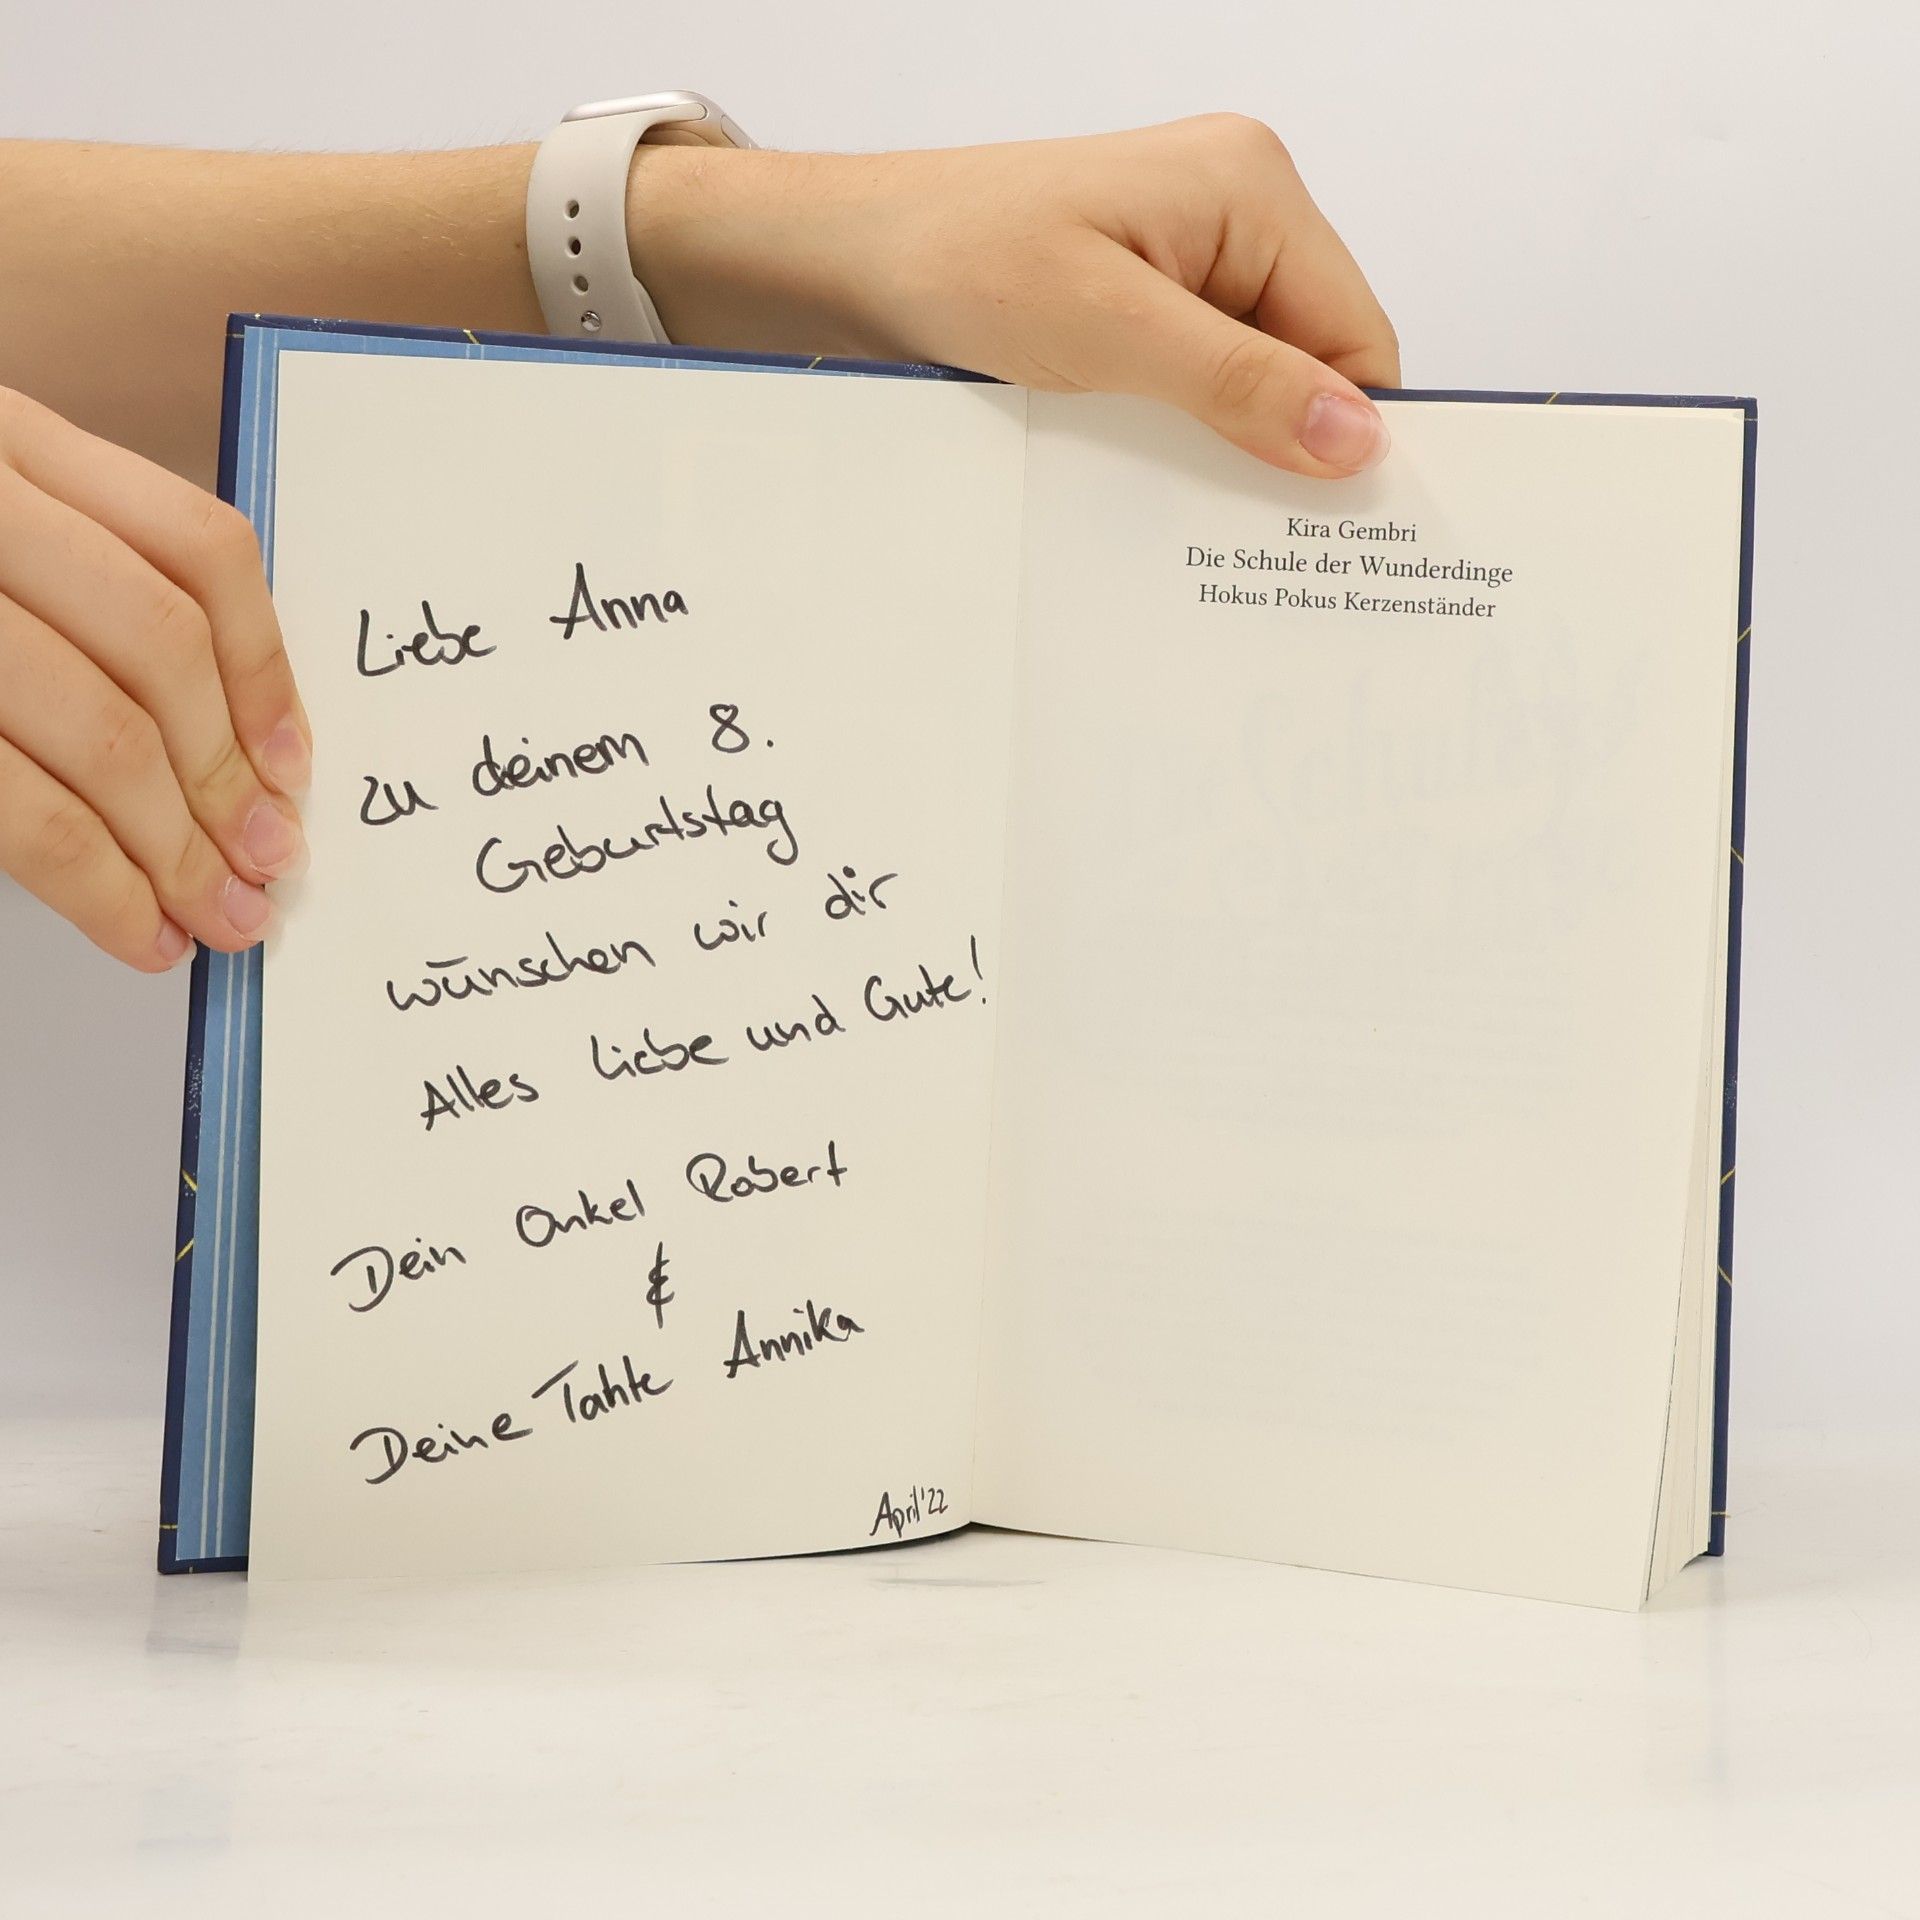 Liebe Anna
zu deinem 8.
Geburtstag
wünschen wir dir
Alles Liebe und Gute!
Dein Onkel Robert
&
Deine Tante Annika
April '22
Kira Gembri
Die Schule der Wunderdinge
Hokus Pokus Kerzenständer